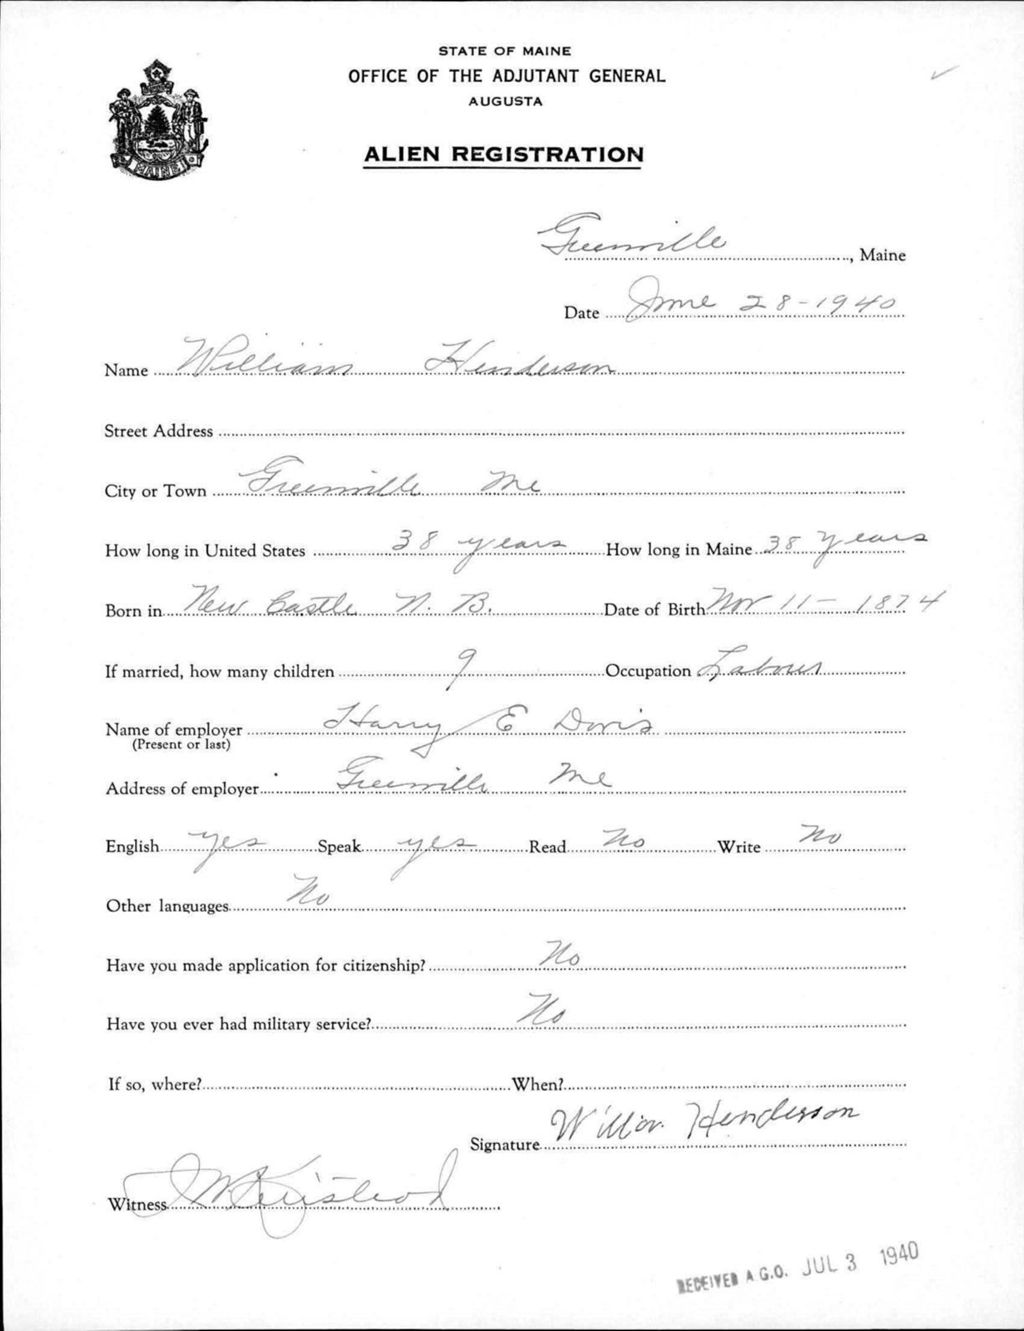 STATE OF MAINE
OFFICE OF THE ADJUTANT GENERAL
AUGUSTA
ALIEN REGISTRATION
MAINE
Greenville, Maine
Date June 28-1940
Name William Henderson
Street Address
City or Town Greenville Me
How long in United States 38 years How long in Maine 38 years
Born in New Castle N. B. Date of Birth Nov 11 - 1874
If married, how many children 9 Occupation Labour
Name of employer Harry E Davis
(Present or last)
Address of employer Greenville Me
English yes Speak yes Read No Write No
Other languages No
Have you made application for citizenship? No
Have you ever had military service? No
If so, where? When?
Signature Henderson
Witness
RECEIVED A.G.O. JUL 3 1940